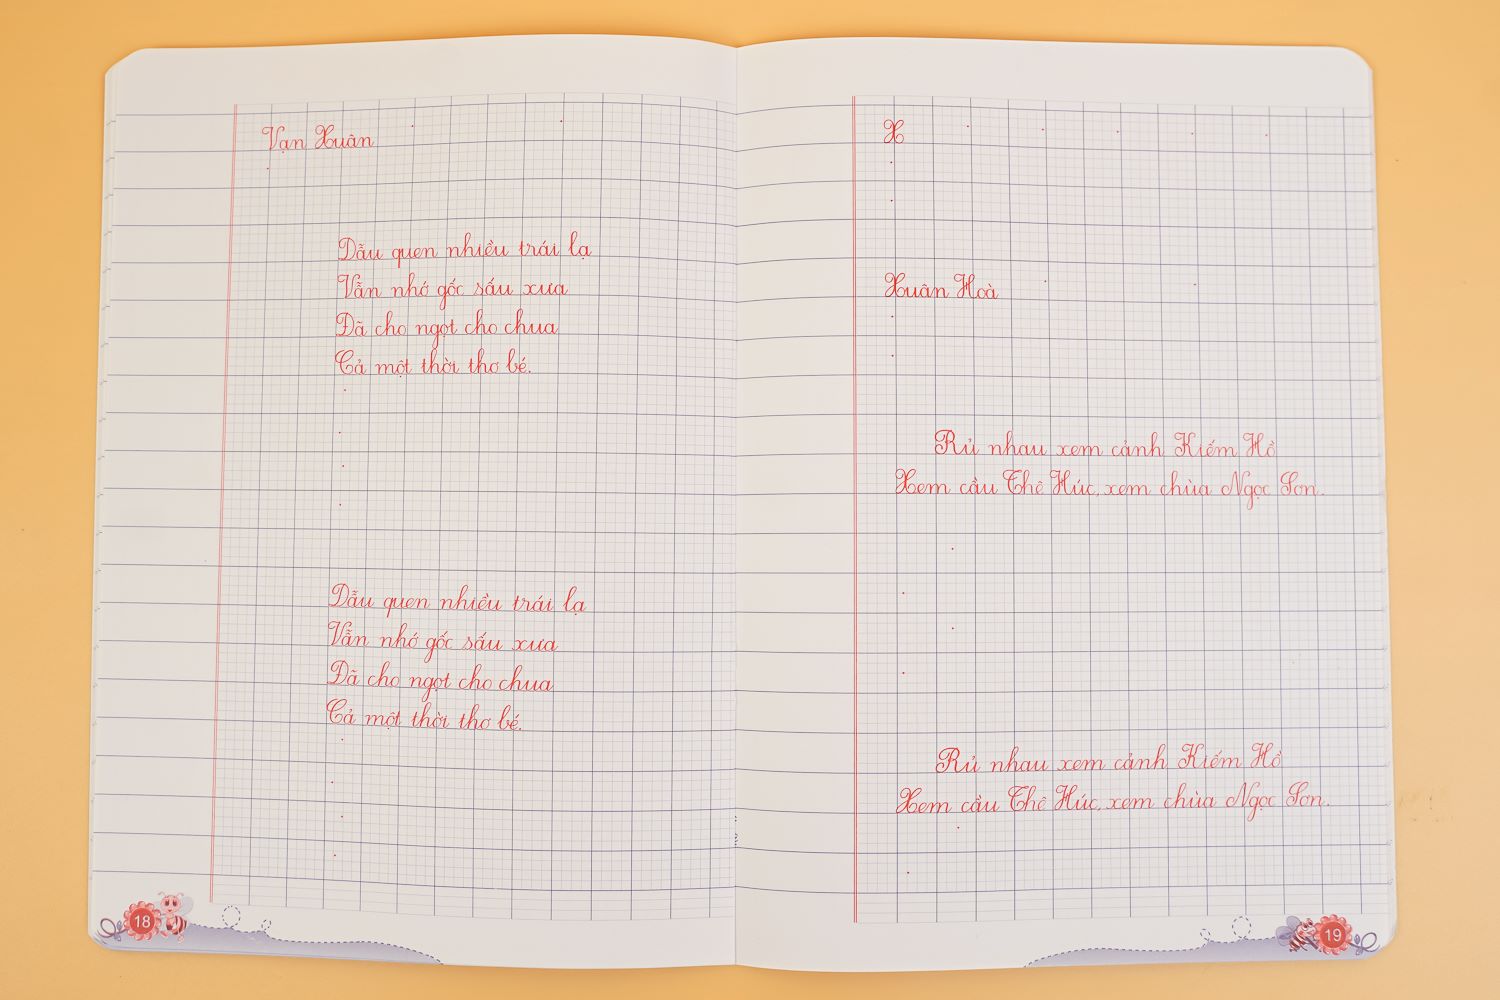 Vạn Xuân
Dẫu quen nhiều trái lạ
Vẫn nhớ gốc sấu xưa
Đã cho ngọt cho chua
Cả một thời thơ bé.
Dẫu quen nhiều trái lạ
Vẫn nhớ gốc sấu xưa
Đã cho ngọt cho chua
Cả một thời thơ bé.
18
X
Xuân Hoà
Rủ nhau xem cảnh Kiếm Hồ
Xem cầu Thê Húc, xem chùa Ngọc Sơn.
Rủ nhau xem cảnh Kiếm Hồ
Xem cầu Thê Húc, xem chùa Ngọc Sơn.
19